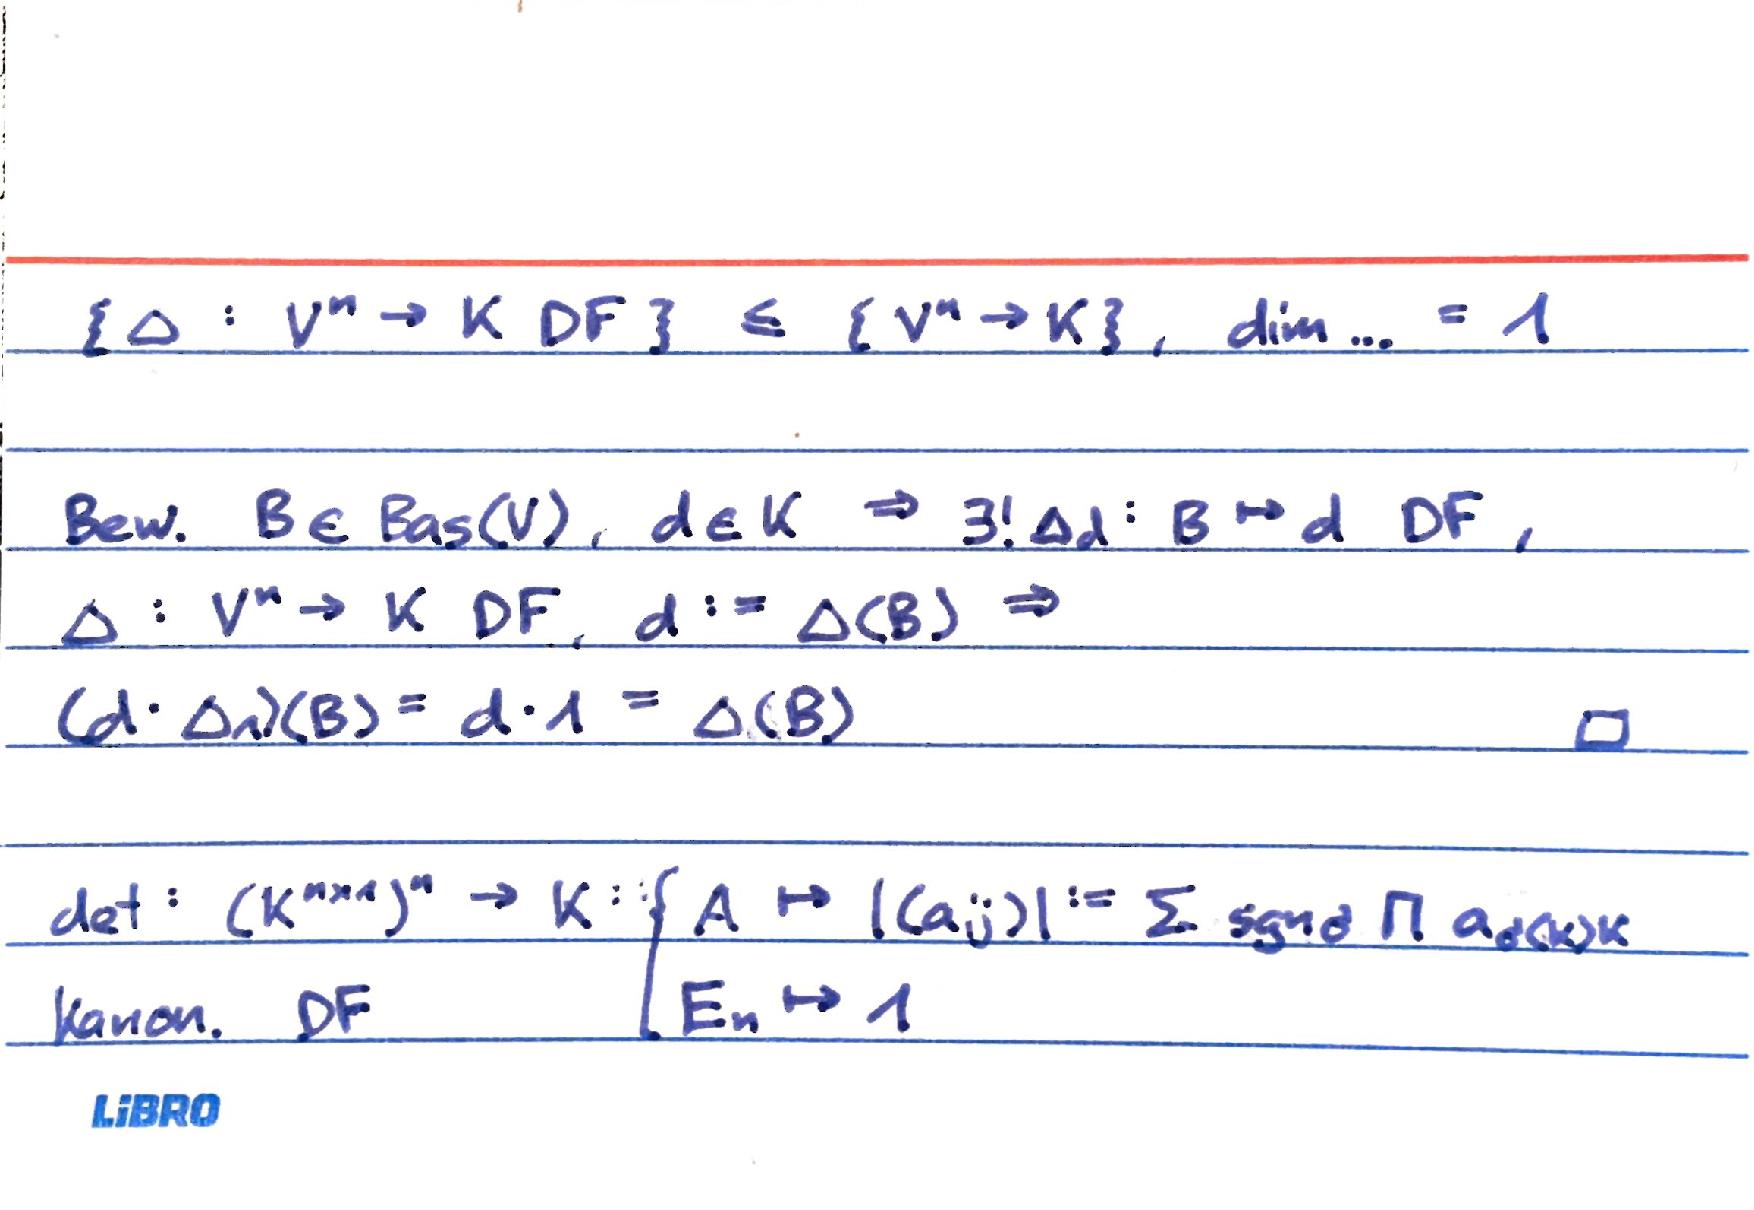 {Δ : Vⁿ → K DF} ≤ {Vⁿ → K}, dim ... = 1
Bew. B ∈ Bas(V), d ∈ K ⇒ ∃! Δd : B ↦ d DF,
Δ : Vⁿ → K DF, d := Δ(B) ⇒
(d · Δ₁)(B) = d · 1 = Δ(B) □
det : (Kⁿˣ¹)ⁿ → K : { A ↦ |(aᵢⱼ)| := Σ sgn σ Π a_σ(k)k
Kanon. DF Eₙ ↦ 1
LiBRO